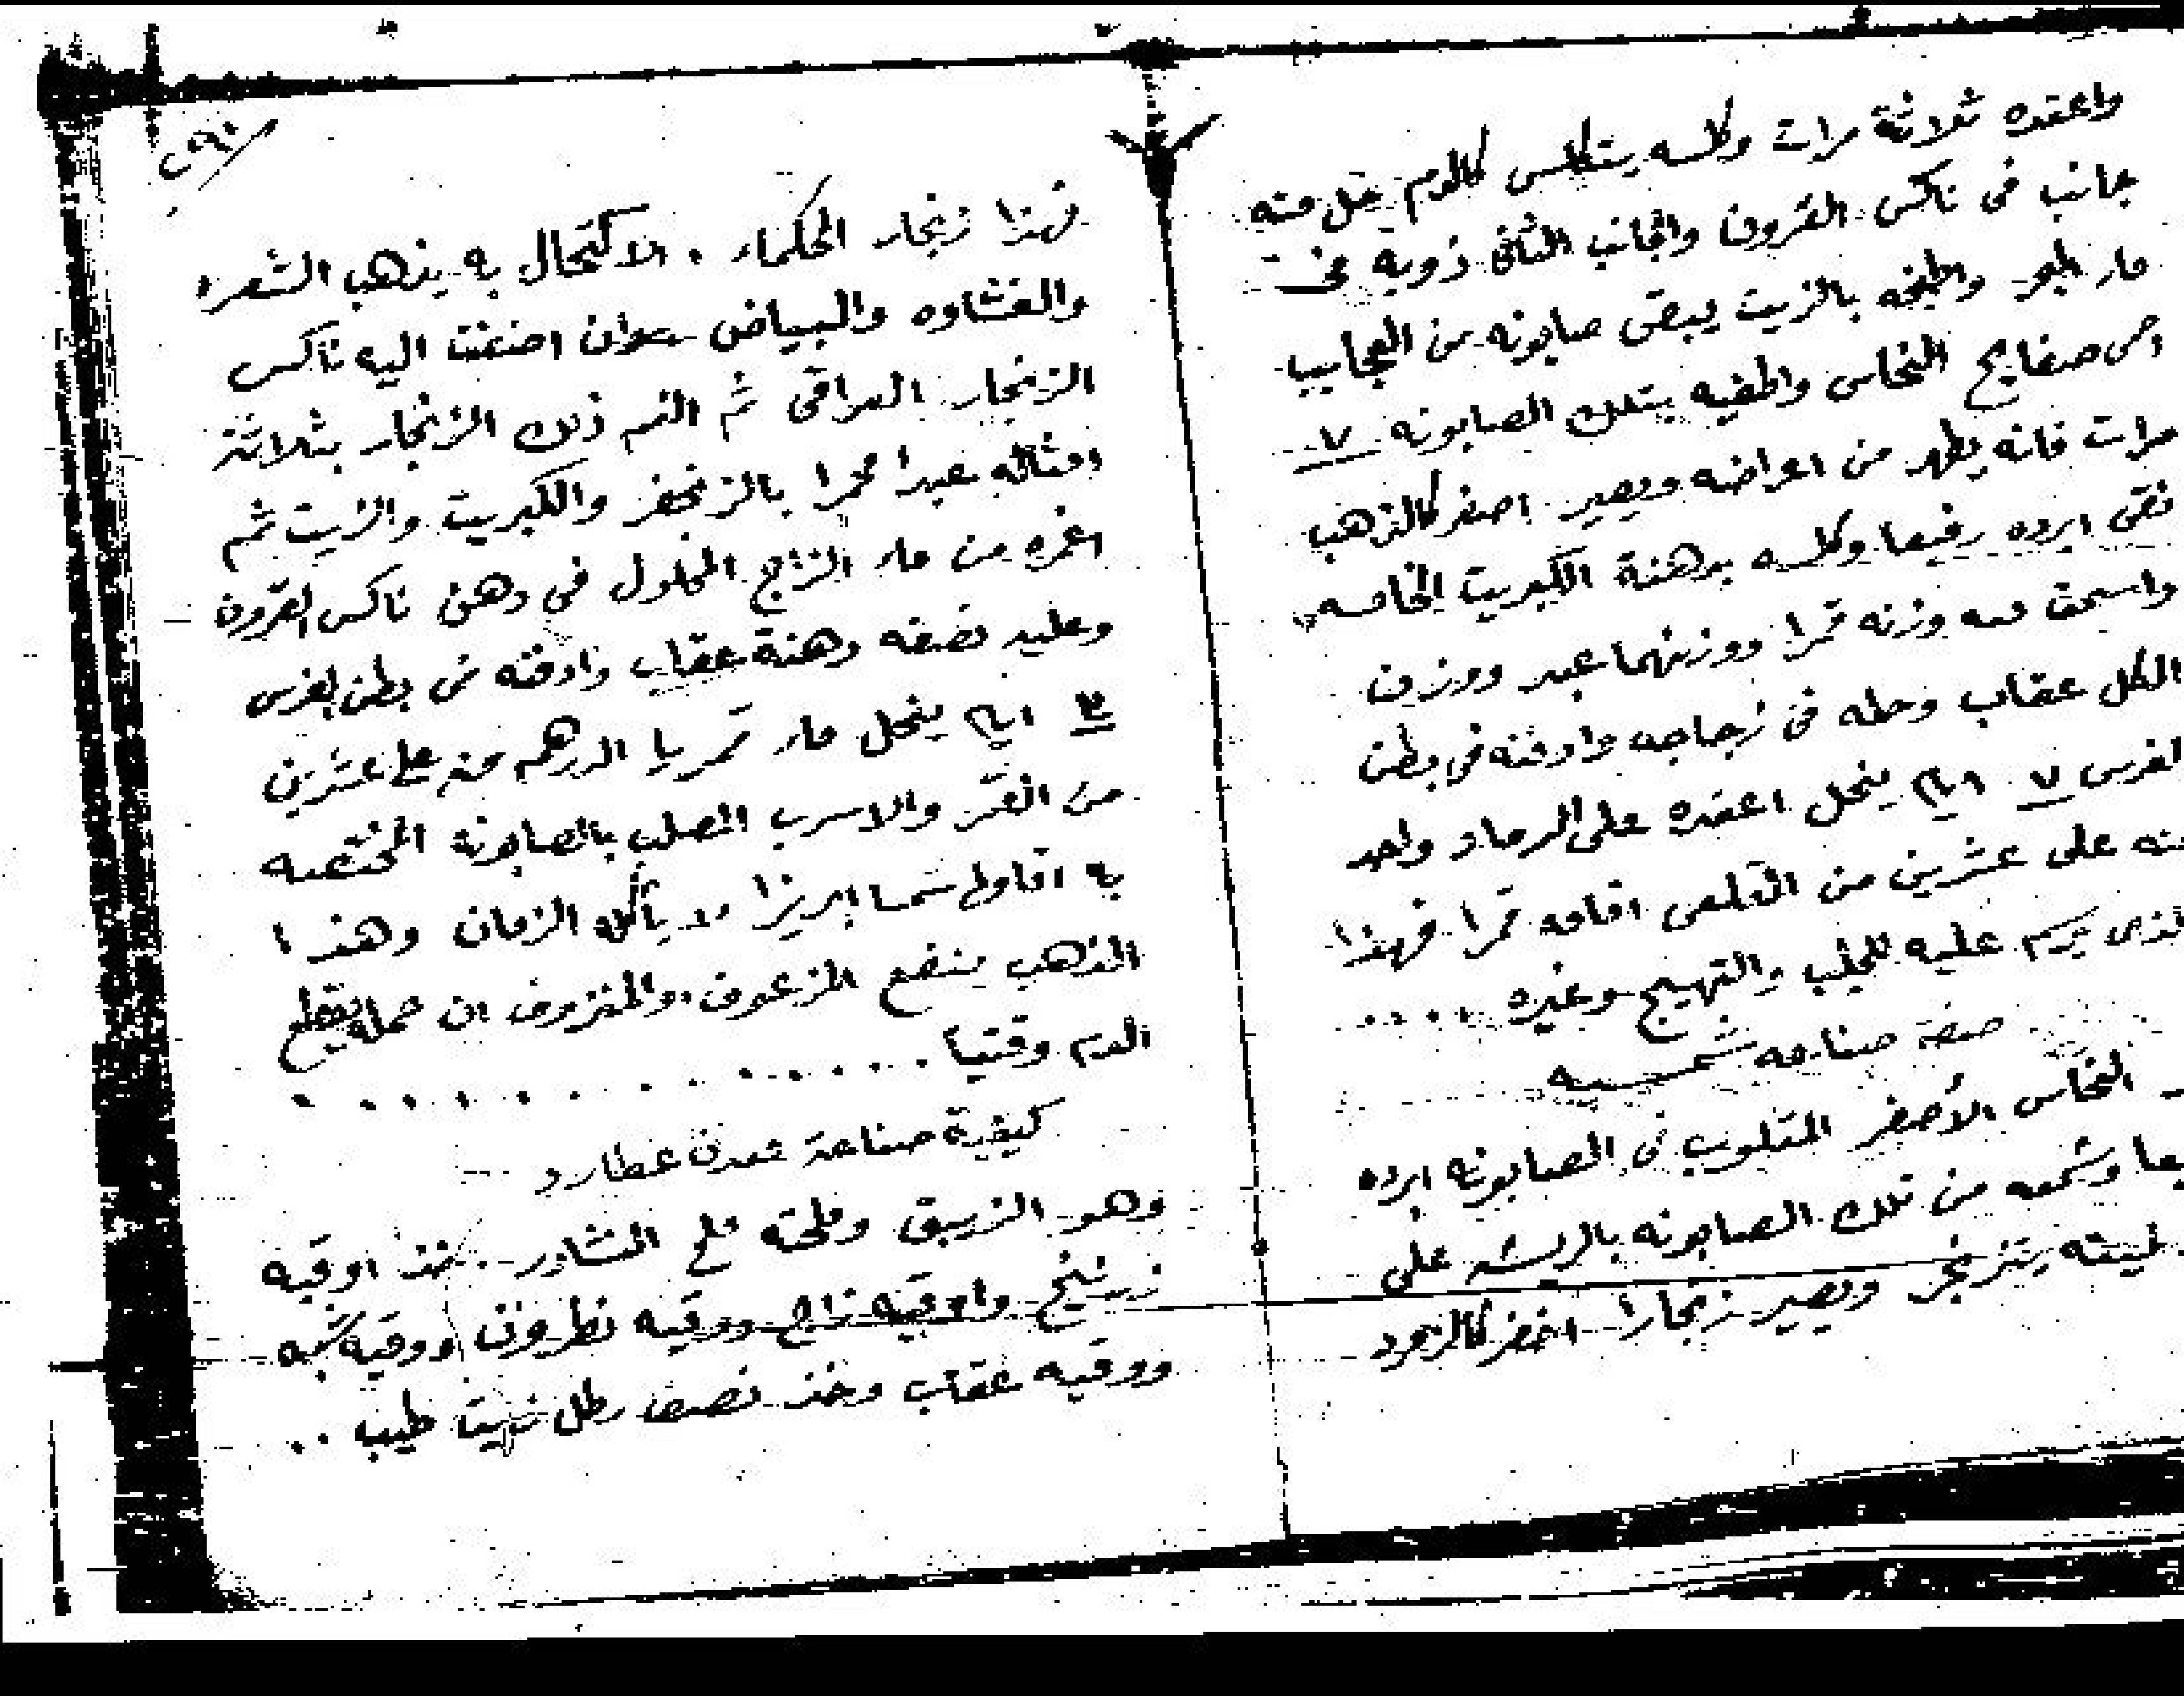 واعقده ثلاثة مرات وكلسه يتكلس كالدم حل منه
جانب فى ناكس القرون والجانب الثانى ذوبه فى
مار الجو واطبخه بالزيت يبقى صابونه من العجايب
احمى صفايح النحاس واطفيه بتلك الصابونه ٧
مرات فانه يطهر من اعراضه ويصير اصفر كالذهب
نقى ابرده رفيعا وكلسه بدهنة الكبريت الخامسه
واسحق معه وزنه قمرا ووزنهما عبد ووزن
الكل عقاب وحله فى زجاجه وادفنه فى بطن
الفرس ٧ ايام ينحل اعقده على الرماد واحد
منه على عشرين من القلعى اقامه قمرا فهذا
الذى يرسم عليه للجلب والتهييج وغيره ....
صفة صناعه شمسيه
النحاس الأصفر المقلوب فى الصابونه ابرده
وشمعه من تلك الصابونه بالريشه على
يتزنجر ويصير زنجارا اخضر كالزمرد
فهذا زنجار الحكماء . الاكتحال به يذهب الشعره
والغشاوه والبياض وان اضفت اليه ناكس
الزنجار العراقى ثم القم ذلك الزنجار بثلاثة
امثاله عبدا محمرا بالزنجفر والكبريت والزيت ثم
اغمره من مار الزاج المحلول فى دهن ناكس القرون
وعليه نصفه دهنة عقاب وادفنه فى بطن الفرس
٣ ايام ينحل مار قمريا الدرهم منه على عشرين
من القمر والاسرب الصلب بالصابونة المختصه
به اقامه شمسا ابريزا لا يأكله الزمان وهذا
الذهب ينفع المزعوف والمنزوف ان حمله يقطع
الدم وقتيا ............
كيفية صناعة معدن عطارد
وهو الزيبق وملحته ملح النشادر . خذ اوقيه
زرنيخ واوقيه زاج ووقيه نطرون ووقيه شبه
ووقيه عقاب وخذ نصف رطل زيت طيب ..